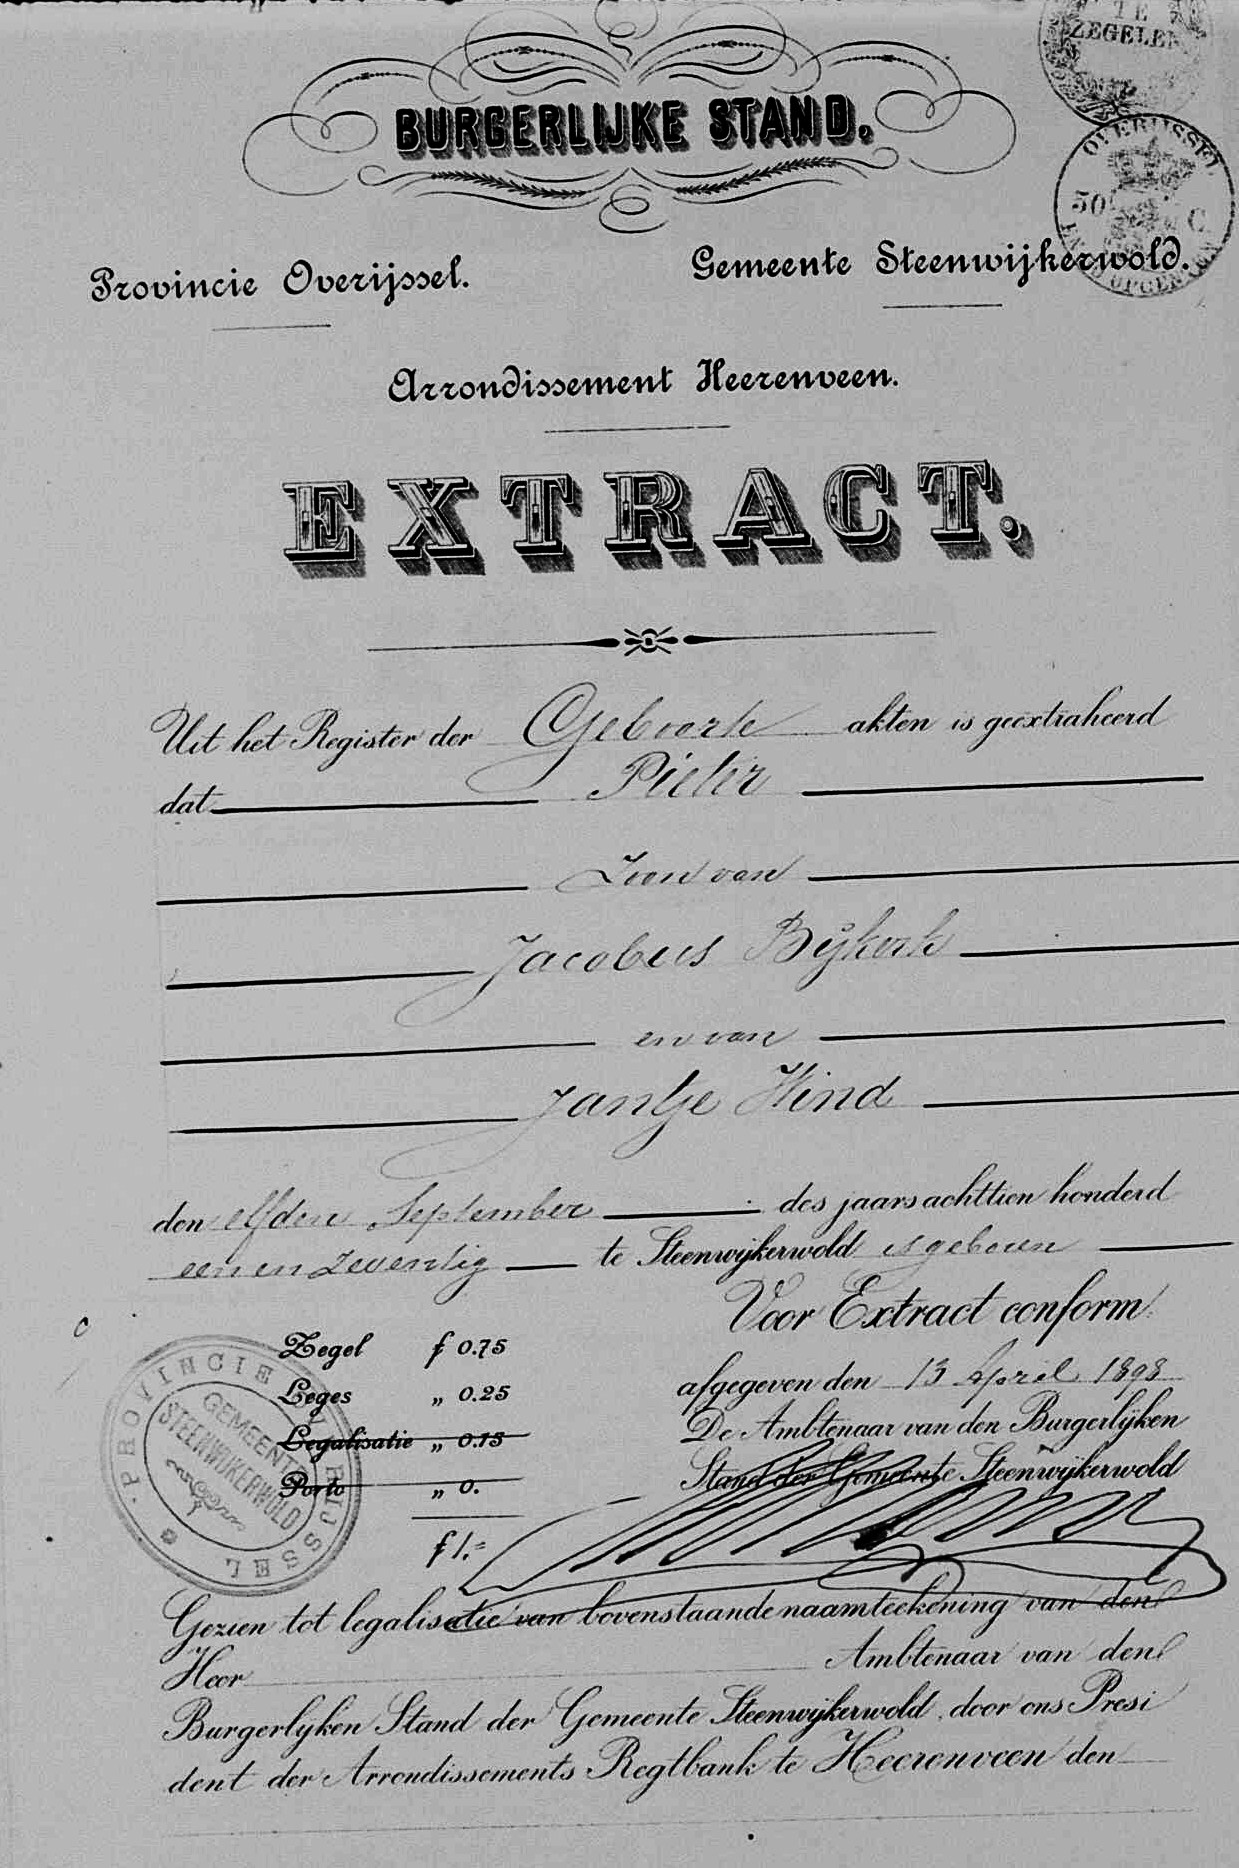 TE
ZEGELEN
BURGERLIJKE STAND.
OVERIJSSEL
50 C
EN OPCENTEN
Provincie Overijssel.
Gemeente Steenwijkerwold.
Arrondissement Heerenveen.
EXTRACT.
Uit het Register der Geboorte akten is geëxtraheerd
dat Pieter
Zoon van
Jacobus Bijkerk
en van
Jantje Hind
den elfden September des jaars achttien honderd
een en zeventig te Steenwijkerwold is geboren
Voor Extract conform
Zegel f 0.75
Leges „ 0.25
Legalisatie „ 0.15
Porto „ 0.
f 1.=
afgegeven den 13 April 1898
De Ambtenaar van den Burgerlijken
Stand der Gemeente Steenwijkerwold
PROVINCIE OVERIJSSEL
GEMEENTE
STEENWIJKERWOLD
Gezien tot legalisatie van bovenstaande naamteekening van den
Heer Ambtenaar van den
Burgerlijken Stand der Gemeente Steenwijkerwold, door ons Presi
dent der Arrondissements Regtbank te Heerenveen den